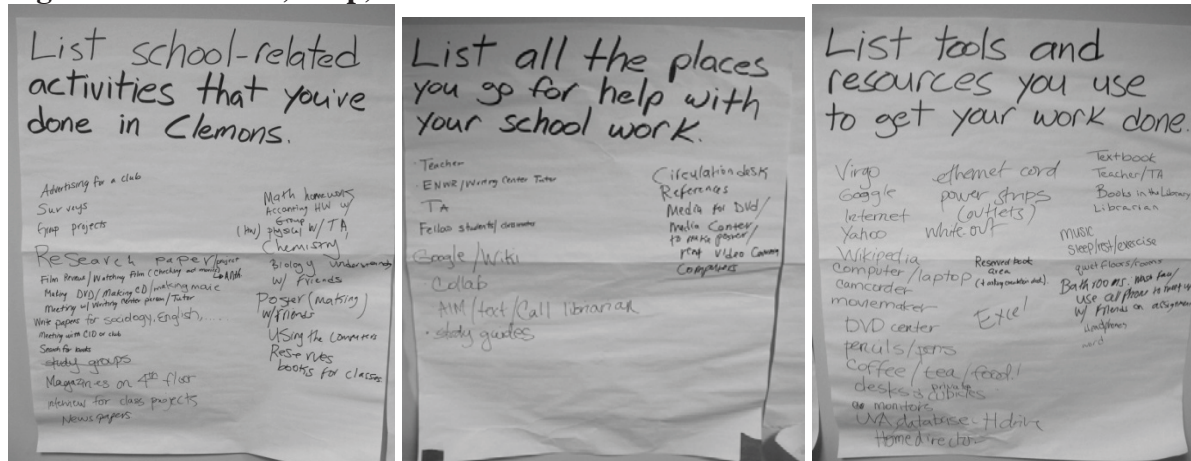 List school-related
activities that you've
done in Clemons.
Advertising for a club
Surveys
Group projects
Research paper/project
Film Review/Watching Film (checking out movies)
Making DVD/Making CD/making movie
Meeting w/ Writing center person/Tutor
Write papers for sociology, English, ....
Meeting with CIO or club
Search for books
study groups
Magazines on 4th floor
interview for class projects
Newspapers
Math homework
Accounting HW w/
Group
(HW) physical w/ TA
Chemistry
Biology
w/ Friends
Poster (making)
w/friends
Using the computers
Reserves
books for classes
List all the places
you go for help with
your school work.
· Teacher
· ENWR/Writing Center Tutor
TA
Fellow students/
Google/Wiki
· Collab
AIM/text/Call librarian
· study guides
Circulation desk
References
Media for DVD/
Media Center
to make poster/
rent video Camera
Computers
List tools and
resources you use
to get your work done.
Virgo
Google
Internet
Yahoo
Wikipedia
Computer/laptop
camcorder
moviemaker
DVD center
pencils/pens
Coffee/tea/food!
desks private cubicles
monitors
UVA database - H drive
Home directory
ethernet cord
power strips
(outlets)
white out
Reserved book
area
Excel
Textbook
Teacher/TA
Books in the Library
Librarian
music
sleep/rest/exercise
quiet floors/rooms
Bathrooms.
use cell phone to meet up
w/ friends on assignment
headphones
word